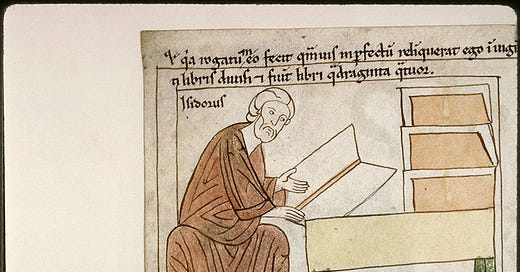 q̃a rogatũ m̃ eo fecit q̃muis inp̃fectũ reliq̃rat ego i uigi
ti libris diuisi ⁊ fuit libri q̃draginta q̃tuor.
Isidorus